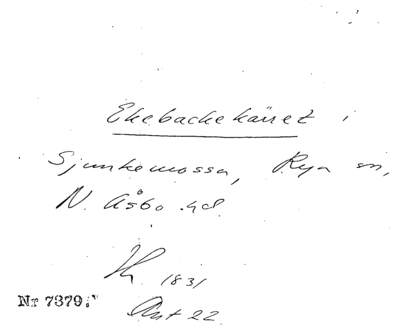 Ekebackekärret i
Sjunkemossa, Rya sn,
N. Åsbo hd.
1831
Nr 7379.
Ant 22